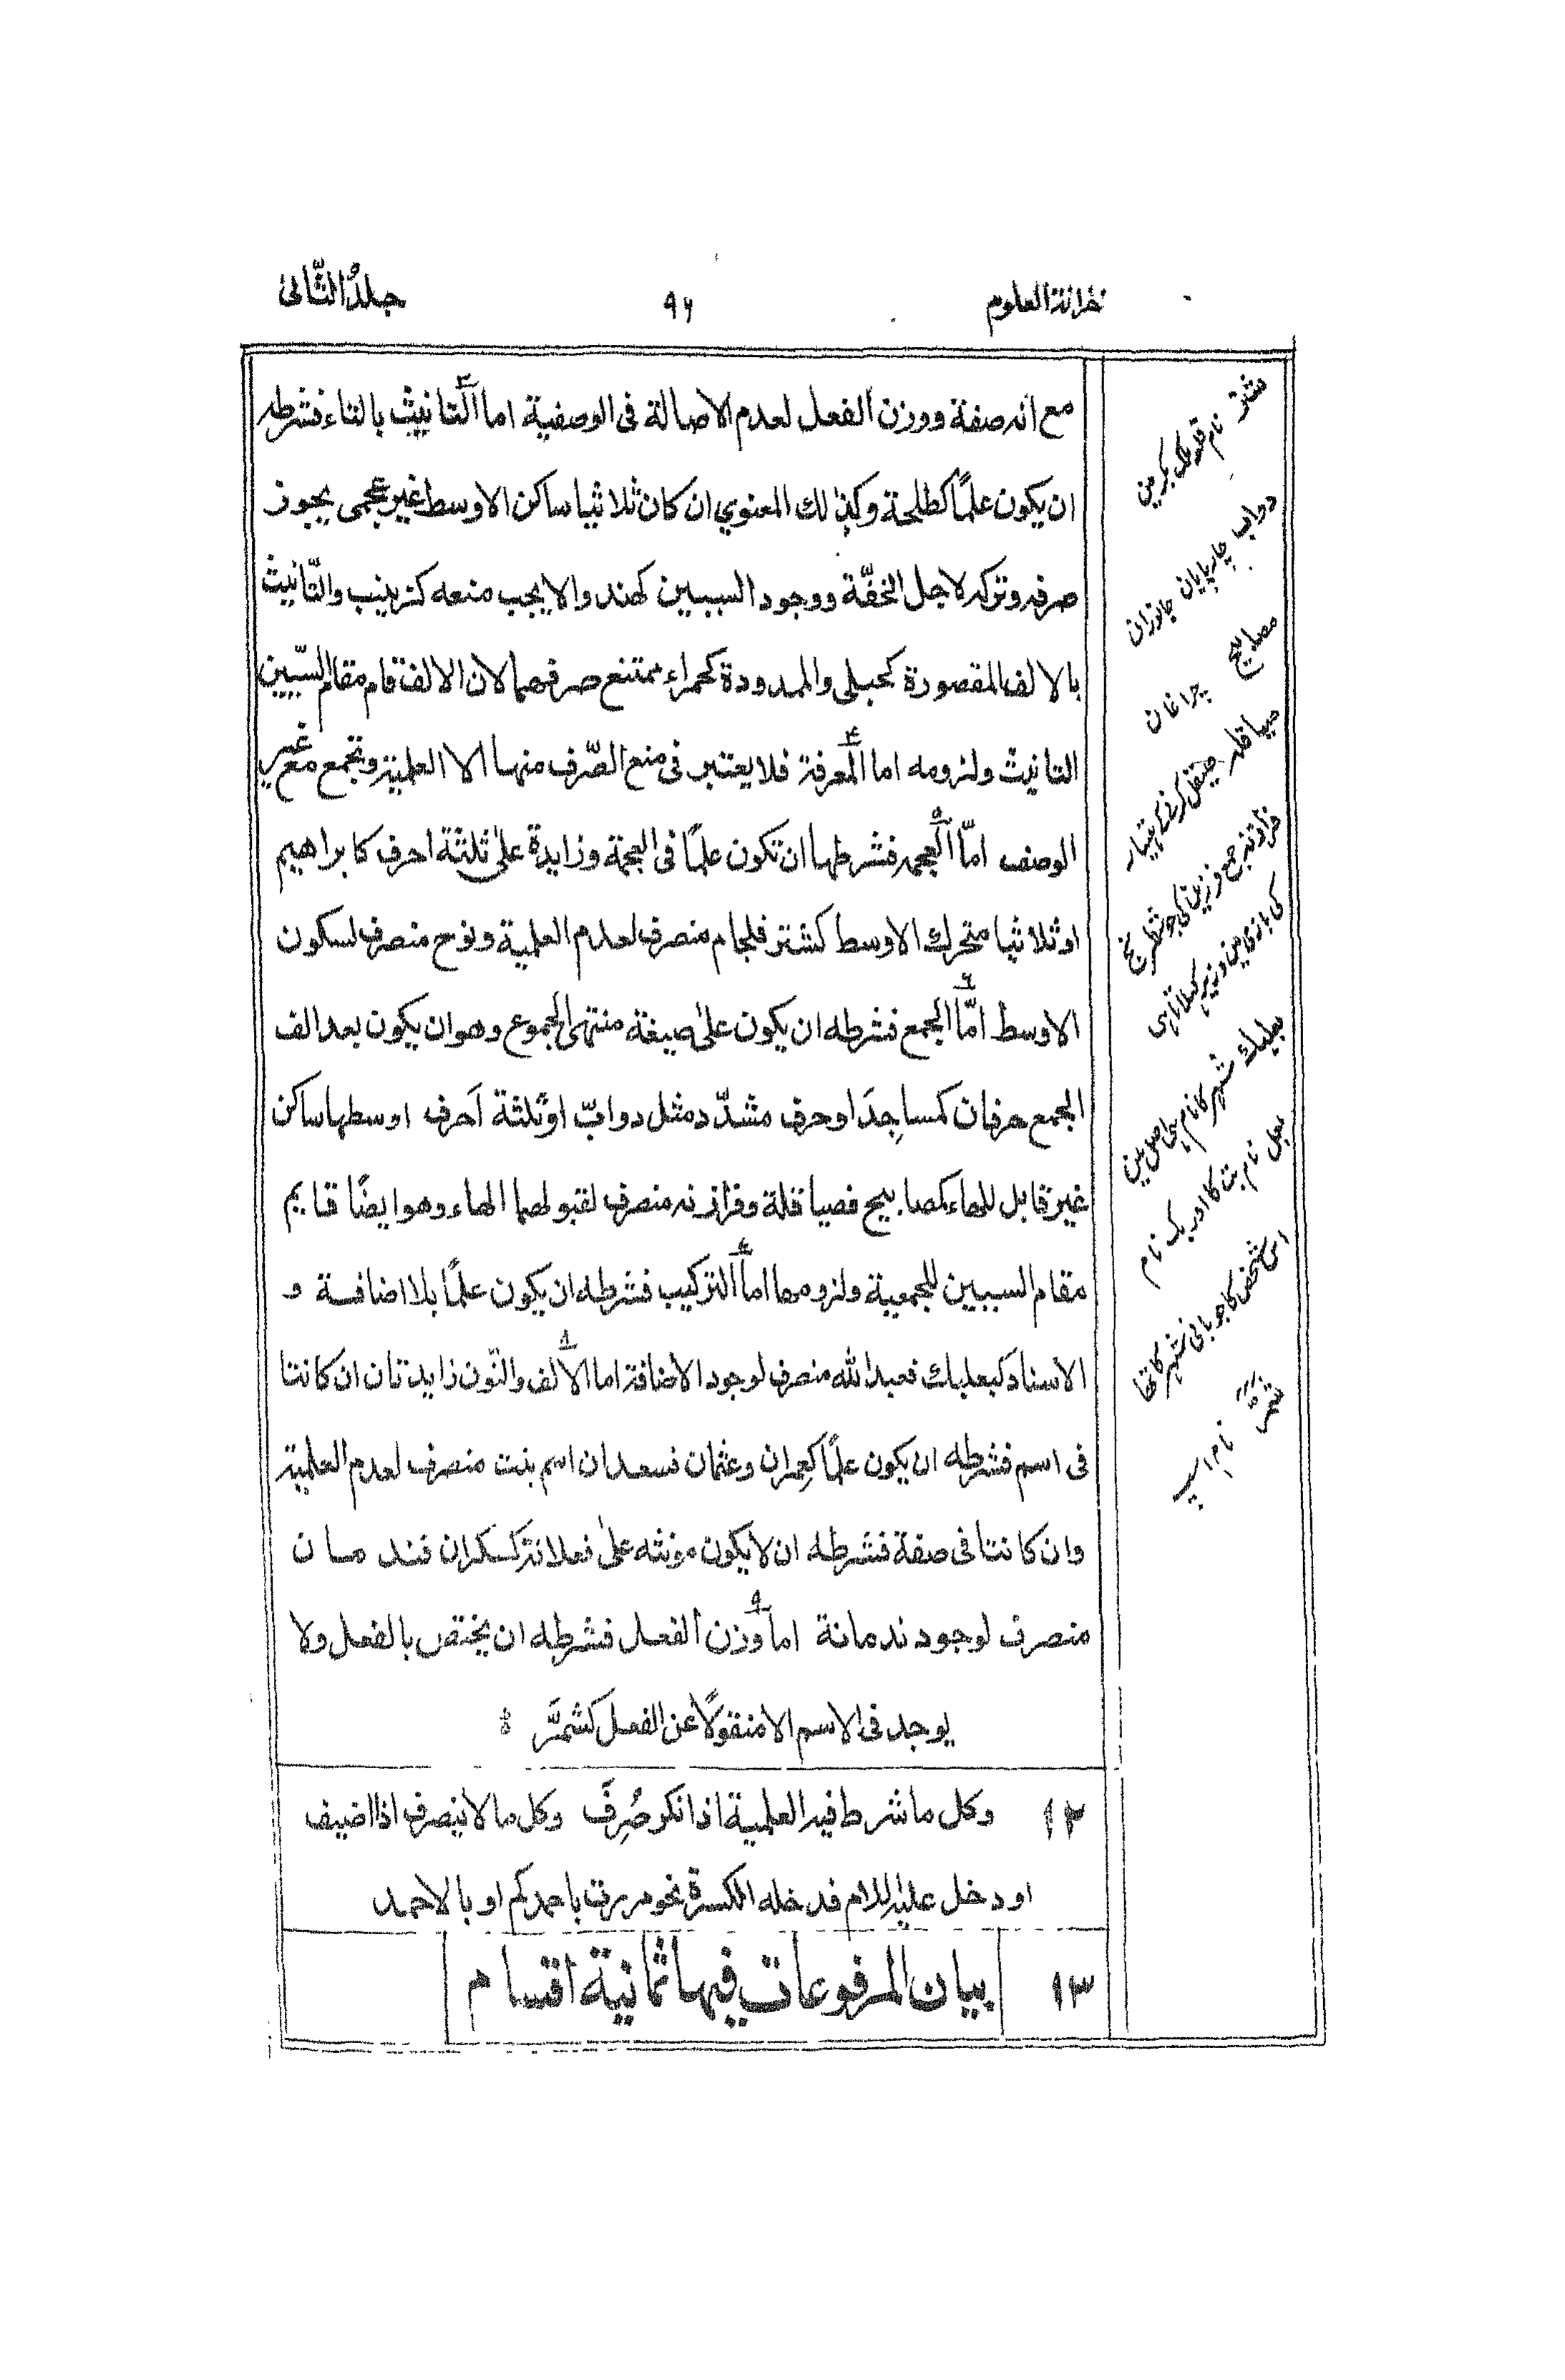 خزانة العلوم
٩٦
جلدُ الثّانی
مع انه صفة ووزن الفعل لعدم الاصالة فی الوصفية اما التانيث بالتاء فشرطه
ان يكون علمًا كطلحة وكذلك المعنوي ان كان ثلاثيا ساكن الاوسط غير عجمی يجوز
صرفه وتركه لاجل الخفّة ووجود السببين كهند والا يجب منعه كزينب والتّانيث
بالالف المقصورة كحبلى والممدودة كحمراء ممتنع صرفهما لان الالف قام مقام السّببين
التانيث ولزومه اما المعرفة فلا يعتبر فی منع الصّرف منها الا العلمية وتجمع مع غير
الوصف امّا العجمه فشرطها ان تكون علمًا فی العجمة وزايدة على ثلثة احرف كابراهيم
او ثلاثيا متحرك الاوسط كشتر فلجام منصرف لعدم العلمية ونوح منصرف لسكون
الاوسط امّا الجمع فشرطه ان يكون على صيغة منتهى الجموع وهو ان يكون بعد الف
الجمع حرفان كمساجِدَ او حرف مشدّد مثل دوابّ او ثلثة اَحرف اوسطها ساكن
غير قابل للهاء كمصابيح فصياقلة وفرازنه منصرف لقبولهما الهاء وهو ايضًا قايم
مقام السببين للجمعية ولزومها اما التركيب فشرطه ان يكون علمًا بلا اضافة و
الاسناد كبعلبك فعبد الله منصرف لوجود الاضافة اما الالف والنّون زايدتان ان كانتا
فی اسم فشرطه ان يكون علمًا كعِمران وعثمان فسعدان اسم بنت منصرف لعدم العلمية
وان كانتا فی صفة فشرطه ان لا يكون مؤنثه على فعلانة كسكران فندمان
منصرف لوجود ندمانة اما وزن الفعل فشرطه ان يختص بالفعل ولا
يوجد فی الاسم الا منقولًا عن الفعل كشمَّر
١٢ وكل ما شرط فيه العلمية اذا نكر صُرِفَ وكل ما لا ينصرف اذا اضيف
او دخل عليه اللام فدخله الكسرة نحو مررت باحمدكم او بالاحمد
١٣ بيان المرفوعات فيها ثمانية اقسام
شتر نام قلعہ
دواب چارپایان جانوران
مصابیح چراغان
صیاقلہ صیقل کرنے
فرازنہ جمع فرزین کی جو شطرنج
کی بازی مین وزیر کہلاتا ہی
بعلبک شہر کا نام ہی اصل مین
بعل نام بت کا اور بک نام
اس شخص کا جو بانی شہر کا تھا
شمّر نام اسپ